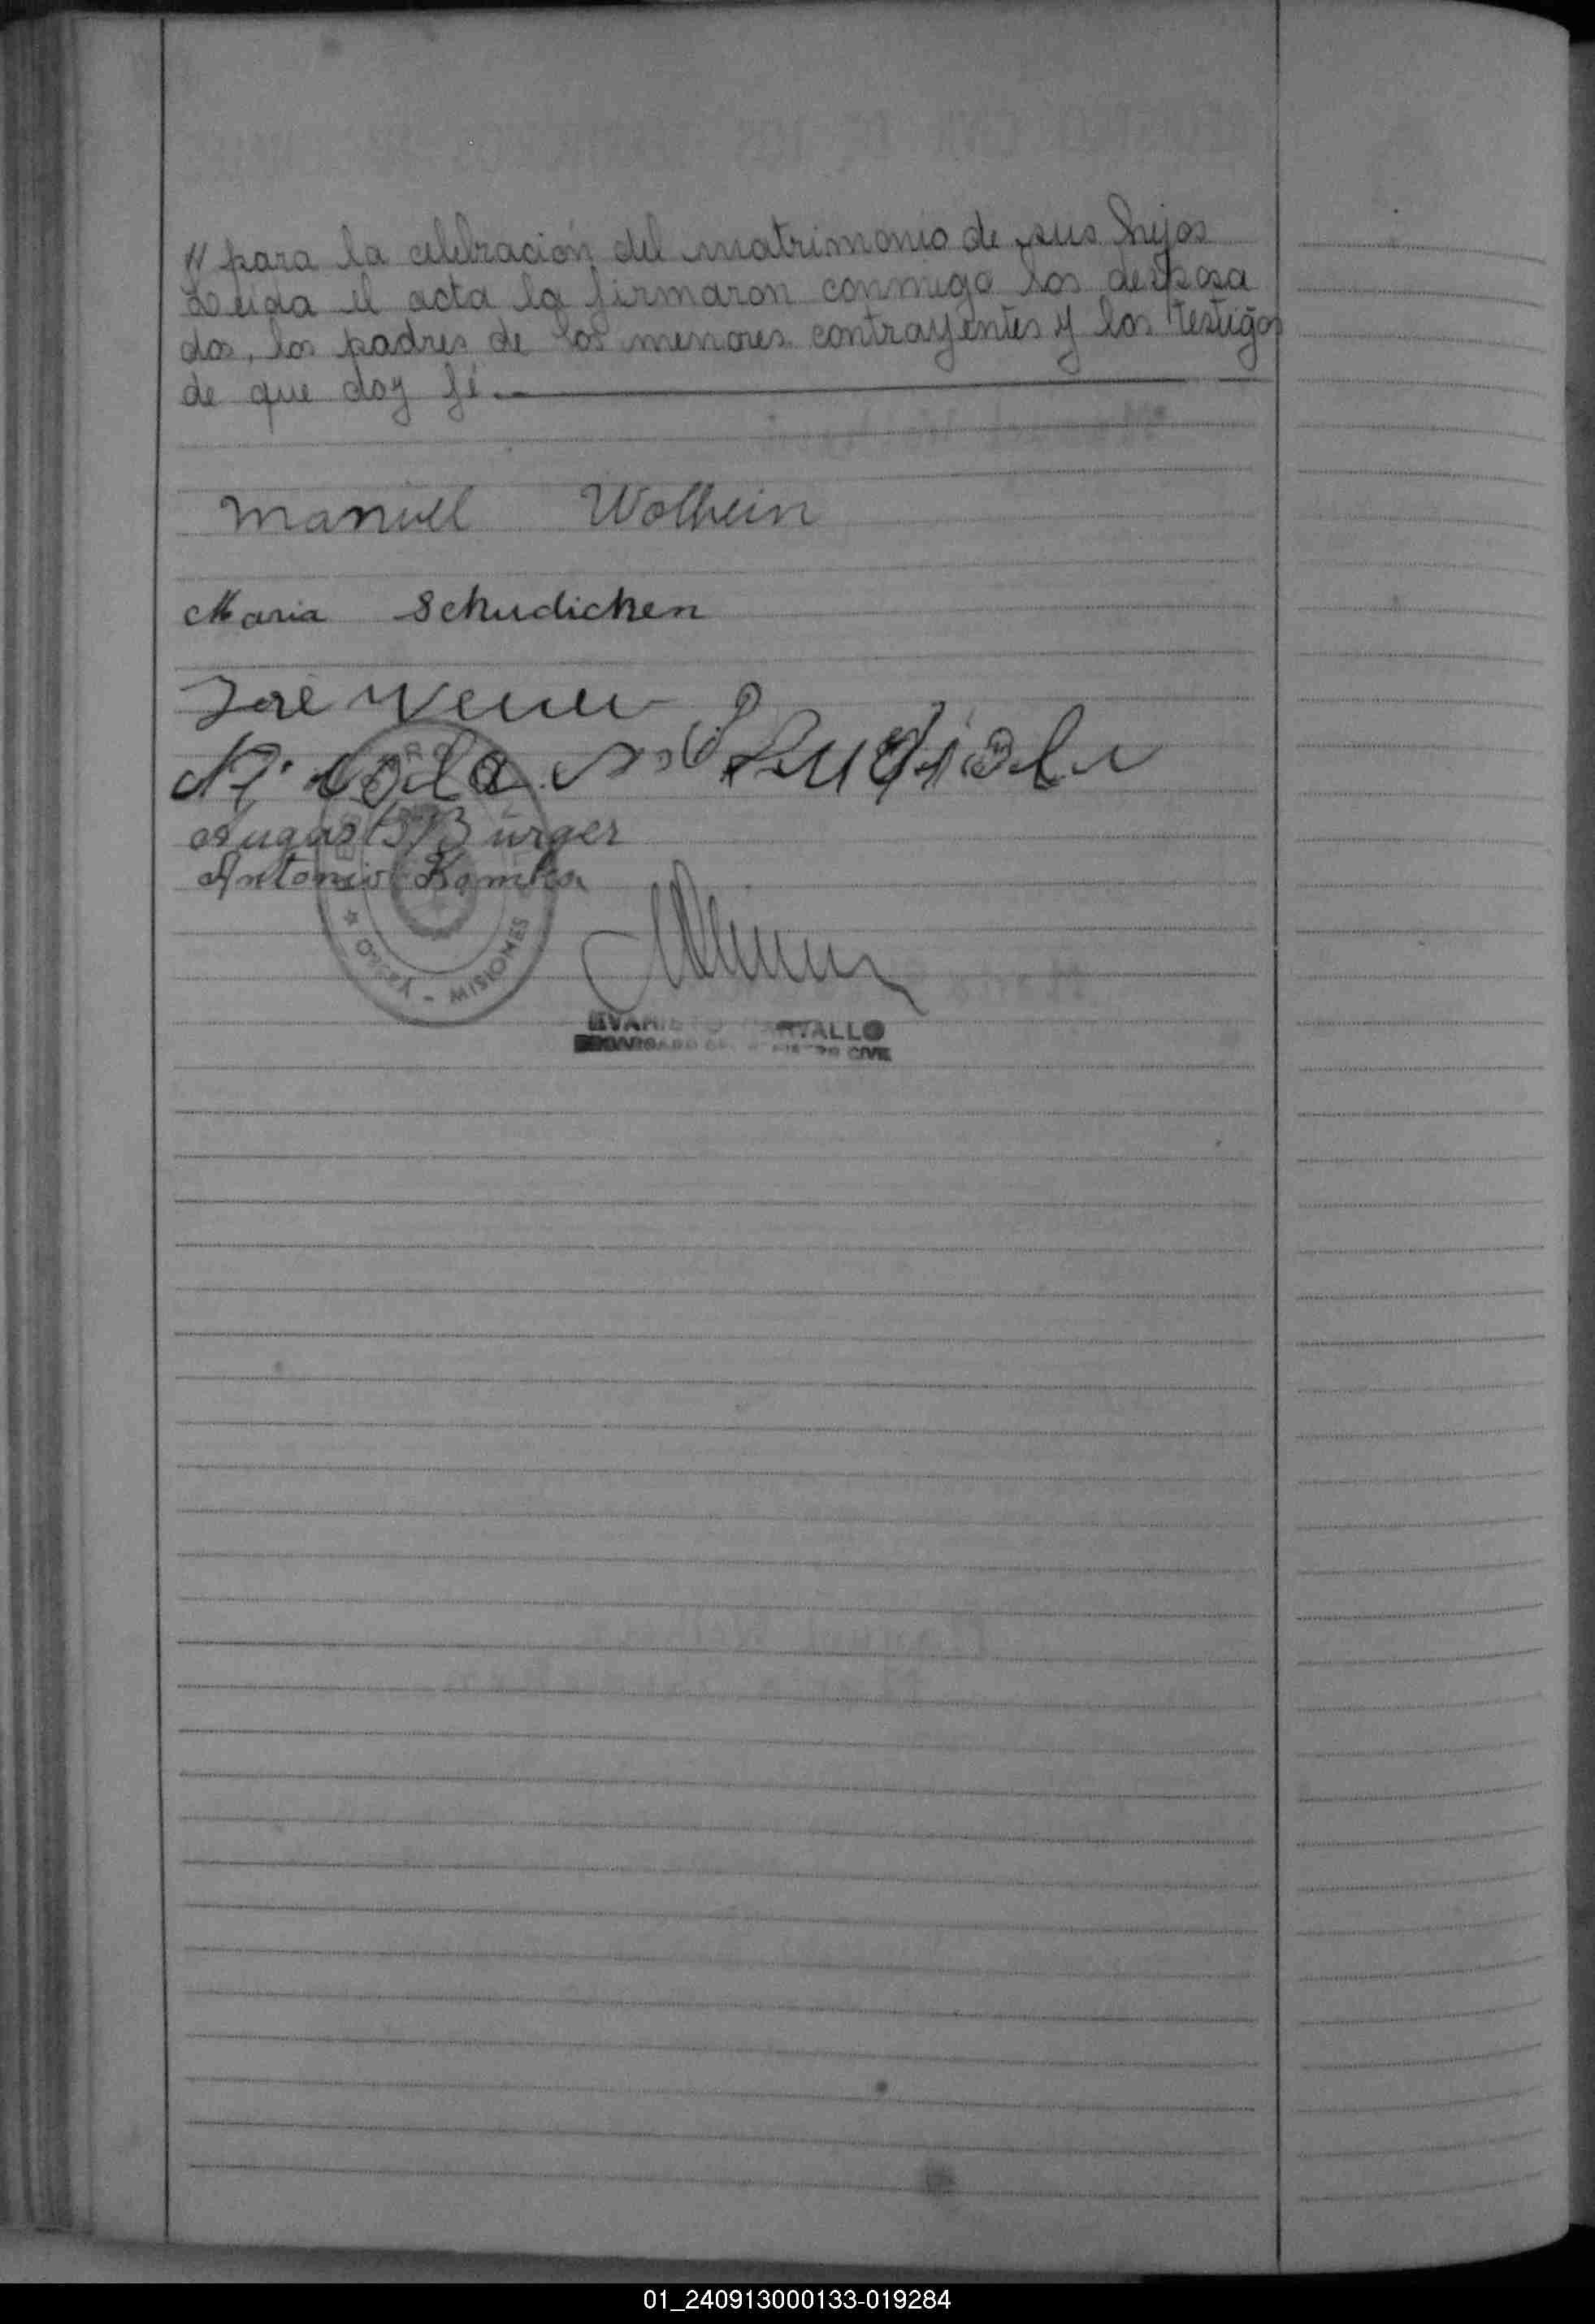 // para la celebración del matrimonio de sus hijos
Leida el acta la firmaron conmigo los desposa
dos, los padres de los menores contrayentes y los testigos
de que doy fé.
Manuel Wolhein
Maria Schudicken
José
August Bürger
Antonio
MISIONES
CIVIL
01_240913000133-019284